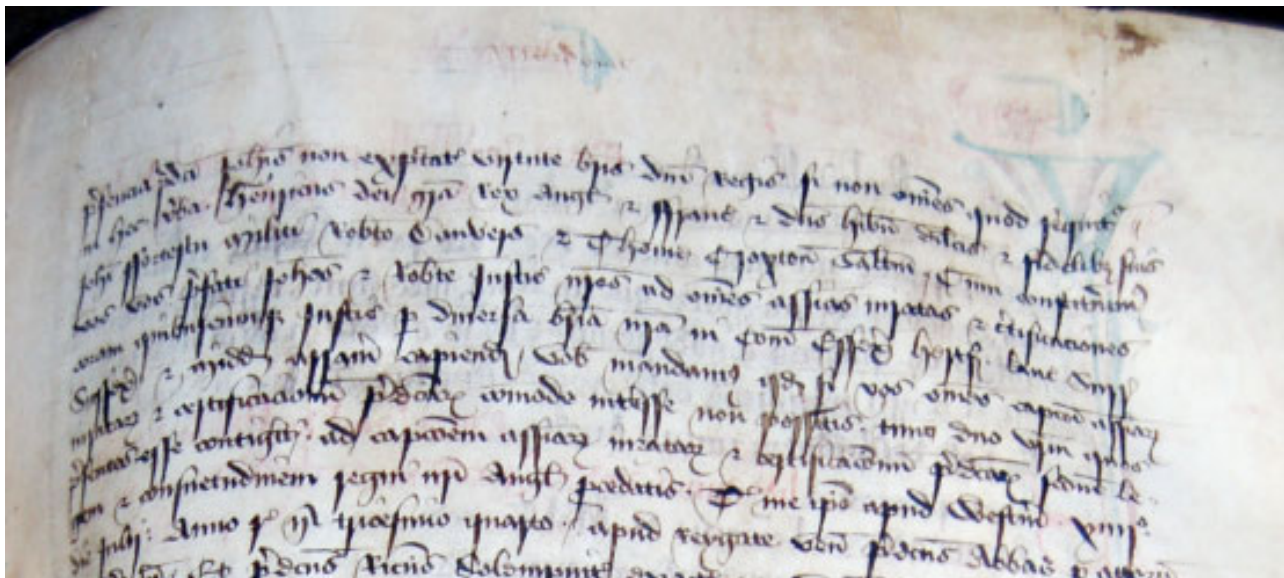 p'sencia p'dci Joh'is non exp'tat' virtute br'is d'ni Regis si non om'es quod
in hec v'ba. Henricus dei gr'a Rex Angl' & Franc' & d'ns hib'n dil'cis & fidelib; suis
Joh'i ffortescu militi Rob'to Danvers & Thome Salt'm Cum constituerim'
vos vos p'fati Joh'es & Rob'te Justic' n'ros ad om'es assisas iuratas & c'tificaciones
coram quibuscumq; Justic' p' diversa br'ia n'ra in Com' Essex' hertf' kanc' Surr'
Sussex' & Midd' capiend' vob' mandam' q'd si vos om'es capc'oi assisar'
iuratar' & certificacionu' p'd'car' comodo int'esse non possitis. tunc duo v'rm quos
p'sentes esse contig'it ad capc'oem assisar' iuratar' & certificacionu' p'd'car' sc'dm le-
gem & consuetudinem regni n'ri Angl' p'cedatis. T' me ip'o apud Westm' xiiij°
die Julij: Anno r' n'ri tricesimo quarto. apud Reygate ven' p'd'cus Abbas p' attorn'
p'd'cus Ric'us Solempnit'